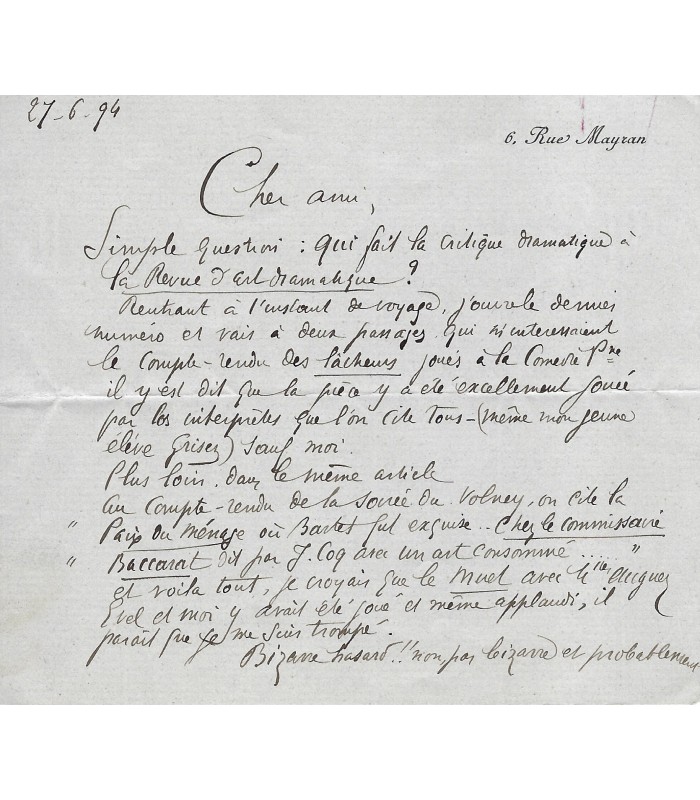 27-6-94
6, Rue Mayran
Cher ami,
Simple question : qui fait la critique dramatique à
la Revue d'art dramatique ?
Rentrant à l'instant de voyage, j'ouvre le dernier
numéro et vais à deux passages qui m'interessaient
le compte-rendu des lâcheurs joués à la Comédie Pne
il y est dit que la pièce y a été excellement jouée
par les interprètes que l'on cite tous - (même mon jeune
élève Grisez) sauf moi.
Plus loin, dans le même article
au compte-rendu de la soirée du Volney, on cite la
" Paix du Ménage où Bartet fut exquise .. Chez le commissaire
" Baccarat dit par J. Coq avec un art consommé ..... "
et voila tout, je croyais que le Muet avec
Evel et moi y avait été joué et même applaudi, il
paraît que je me suis trompé.
Bizarre hasard !! non, pas bizarre et probablement